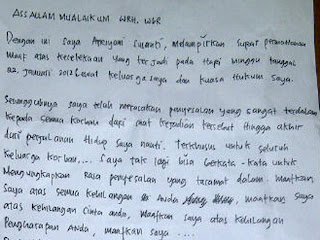 ASSALLAM MUALAIKUM WRH. WBR
Dengan ini saya Apriyani Susanti, melampirkan Surat permohonan
Maaf atas kecelakaan yang terjadi pada hari minggu tanggal
22 Januari 2012 lewat keluarga saya dan kuasa Hukum saya.
Sesungguhnya saya telah merasakan penyesalan yang sangat terdalam
Kepada semua korban dari saat kejadian tersebut hingga akhir
dari perjalanan Hidup saya nanti. Terkhusus untuk seluruh
Keluarga korban,... saya tak lagi bisa berkata-kata untuk
Mengungkapkan Rasa penyesalan yang teramat dalam. Maafkan
Saya atas semua kehilangan Anda, maafkan saya
atas kehilangan Cinta anda, Maafkan saya atas kehilangan
Pengharapan Anda, maafkan saya ....